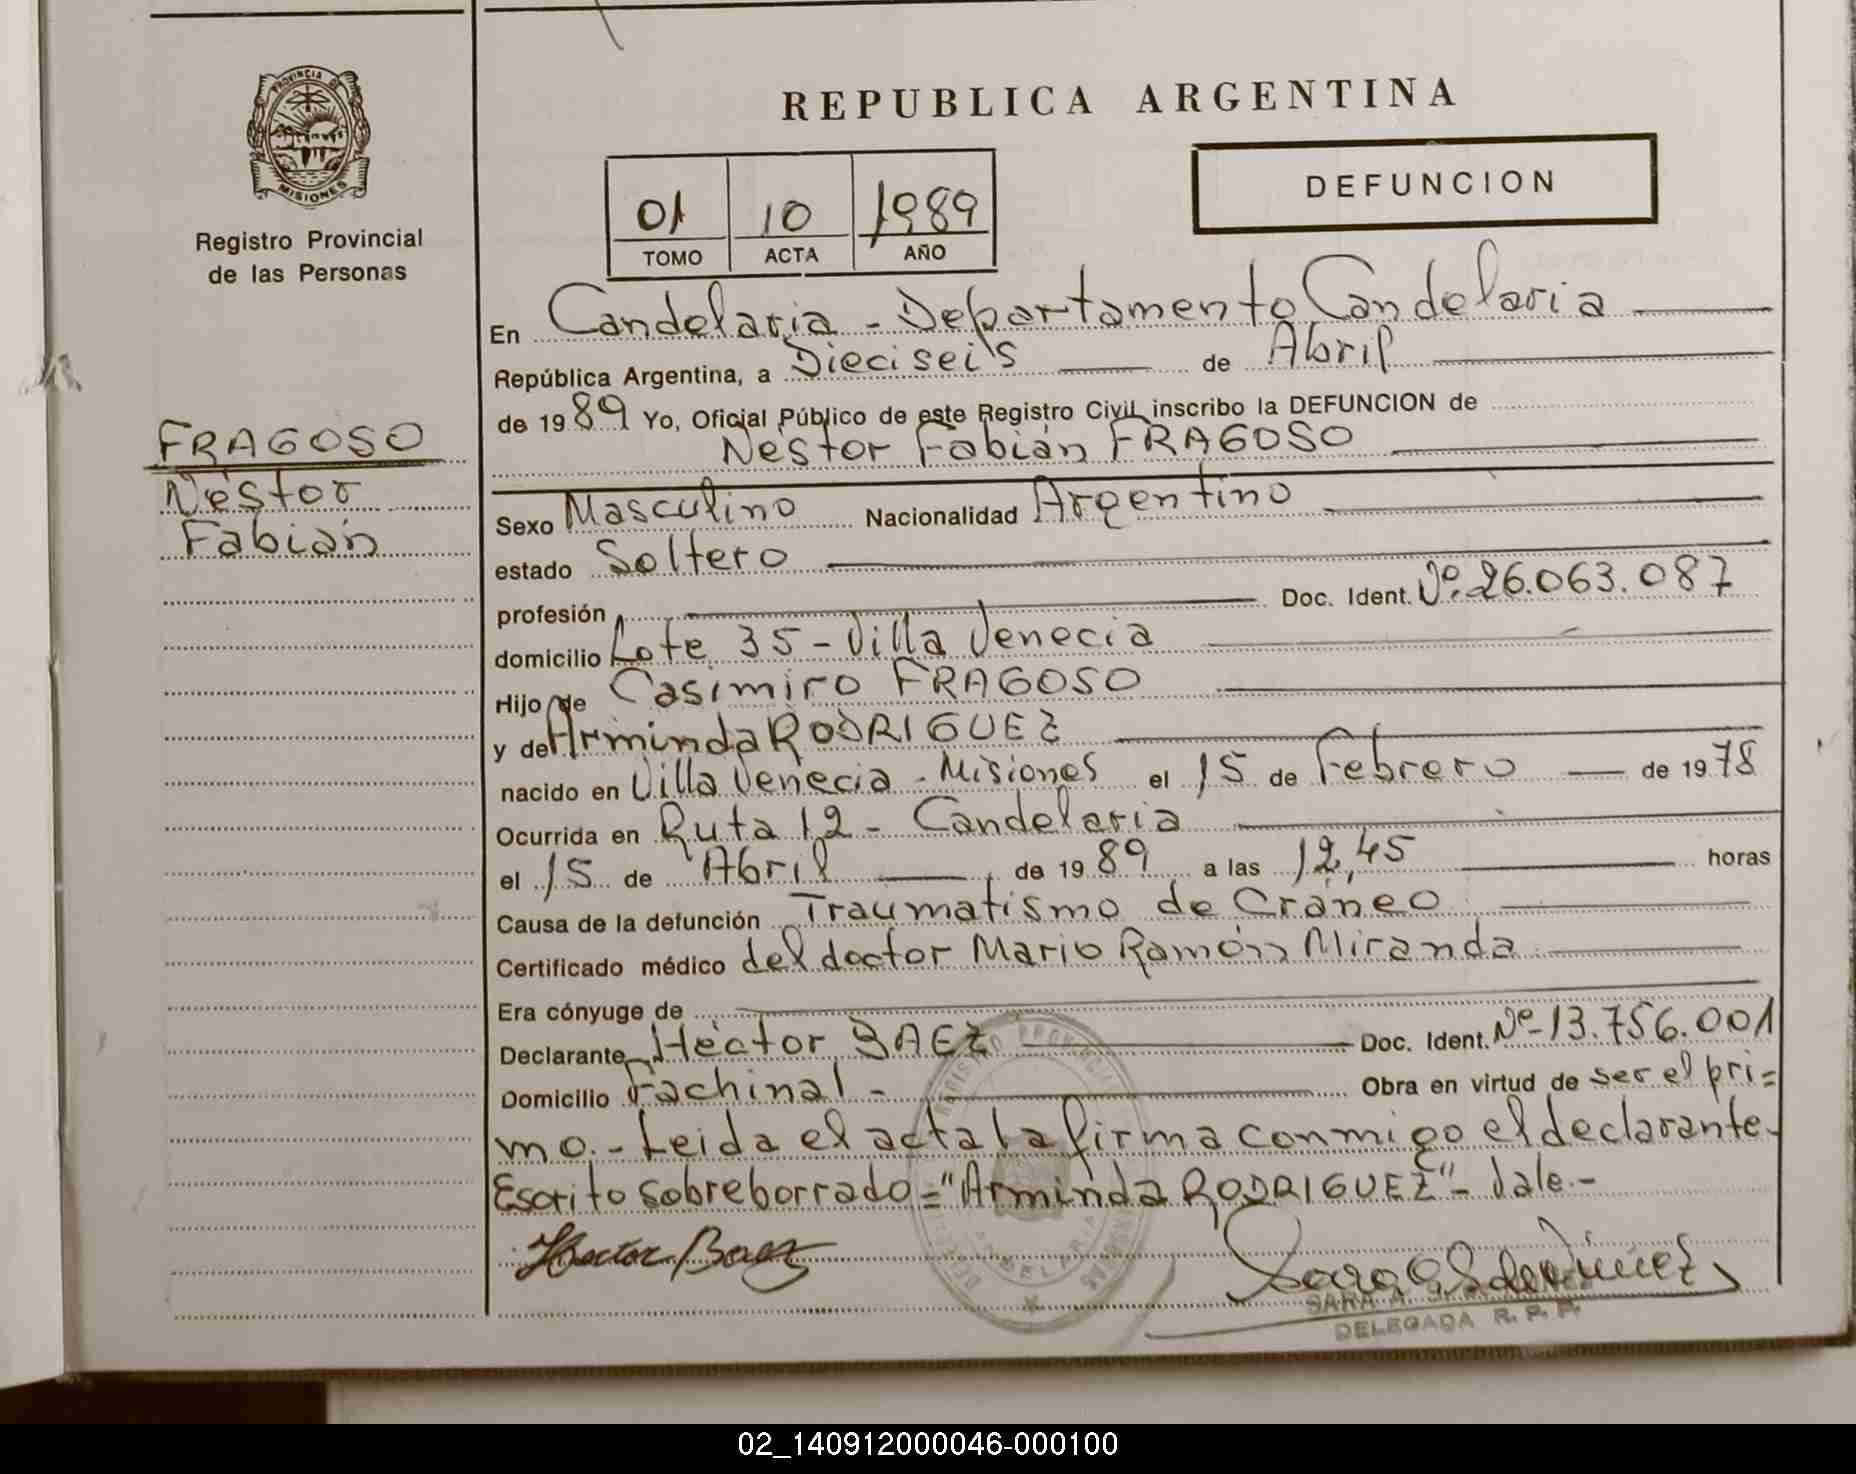 REPUBLICA ARGENTINA
PROVINCIA DE
MISIONES
Registro Provincial
de las Personas
01 10 1989
TOMO ACTA AÑO
DEFUNCION
FRAGOSO
Néstor
Fabián
En Candelaria - Departamento Candelaria
República Argentina, a Dieciseis de Abril
de 1989 Yo, Oficial Público de este Registro Civil, inscribo la DEFUNCION de
Néstor Fabián FRAGOSO
Sexo Masculino Nacionalidad Argentino
estado Soltero
profesión Doc. Ident. Nº 26.063.087
domicilio Lote 35 - Villa Venecia
Hijo de Casimiro FRAGOSO
y de Arminda RODRIGUEZ
nacido en Villa Venecia - Misiones el 15 de Febrero de 1978
Ocurrida en Ruta 12 - Candelaria
el 15 de Abril de 1989 a las 12,45 horas
Causa de la defunción Traumatismo de Cráneo
Certificado médico del doctor Mario Ramón Miranda
Era cónyuge de
Declarante Héctor BAEZ Doc. Ident. Nº 13.756.001
Domicilio Fachinal - Obra en virtud de ser el pri=
mo.- Leida el acta la firma conmigo el declarante.
Escrito sobreborrado="Arminda RODRIGUEZ"- Vale.-
Hector Baez
SARA A.
DELEGADA R. P. P.
02_140912000046-000100